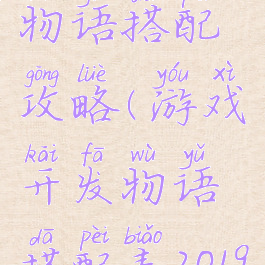 物语搭配
gōng lüè yóu xì
攻略(游戏
kāi fā wù yǔ
开发物语
dā pèi biǎo
搭配表2019